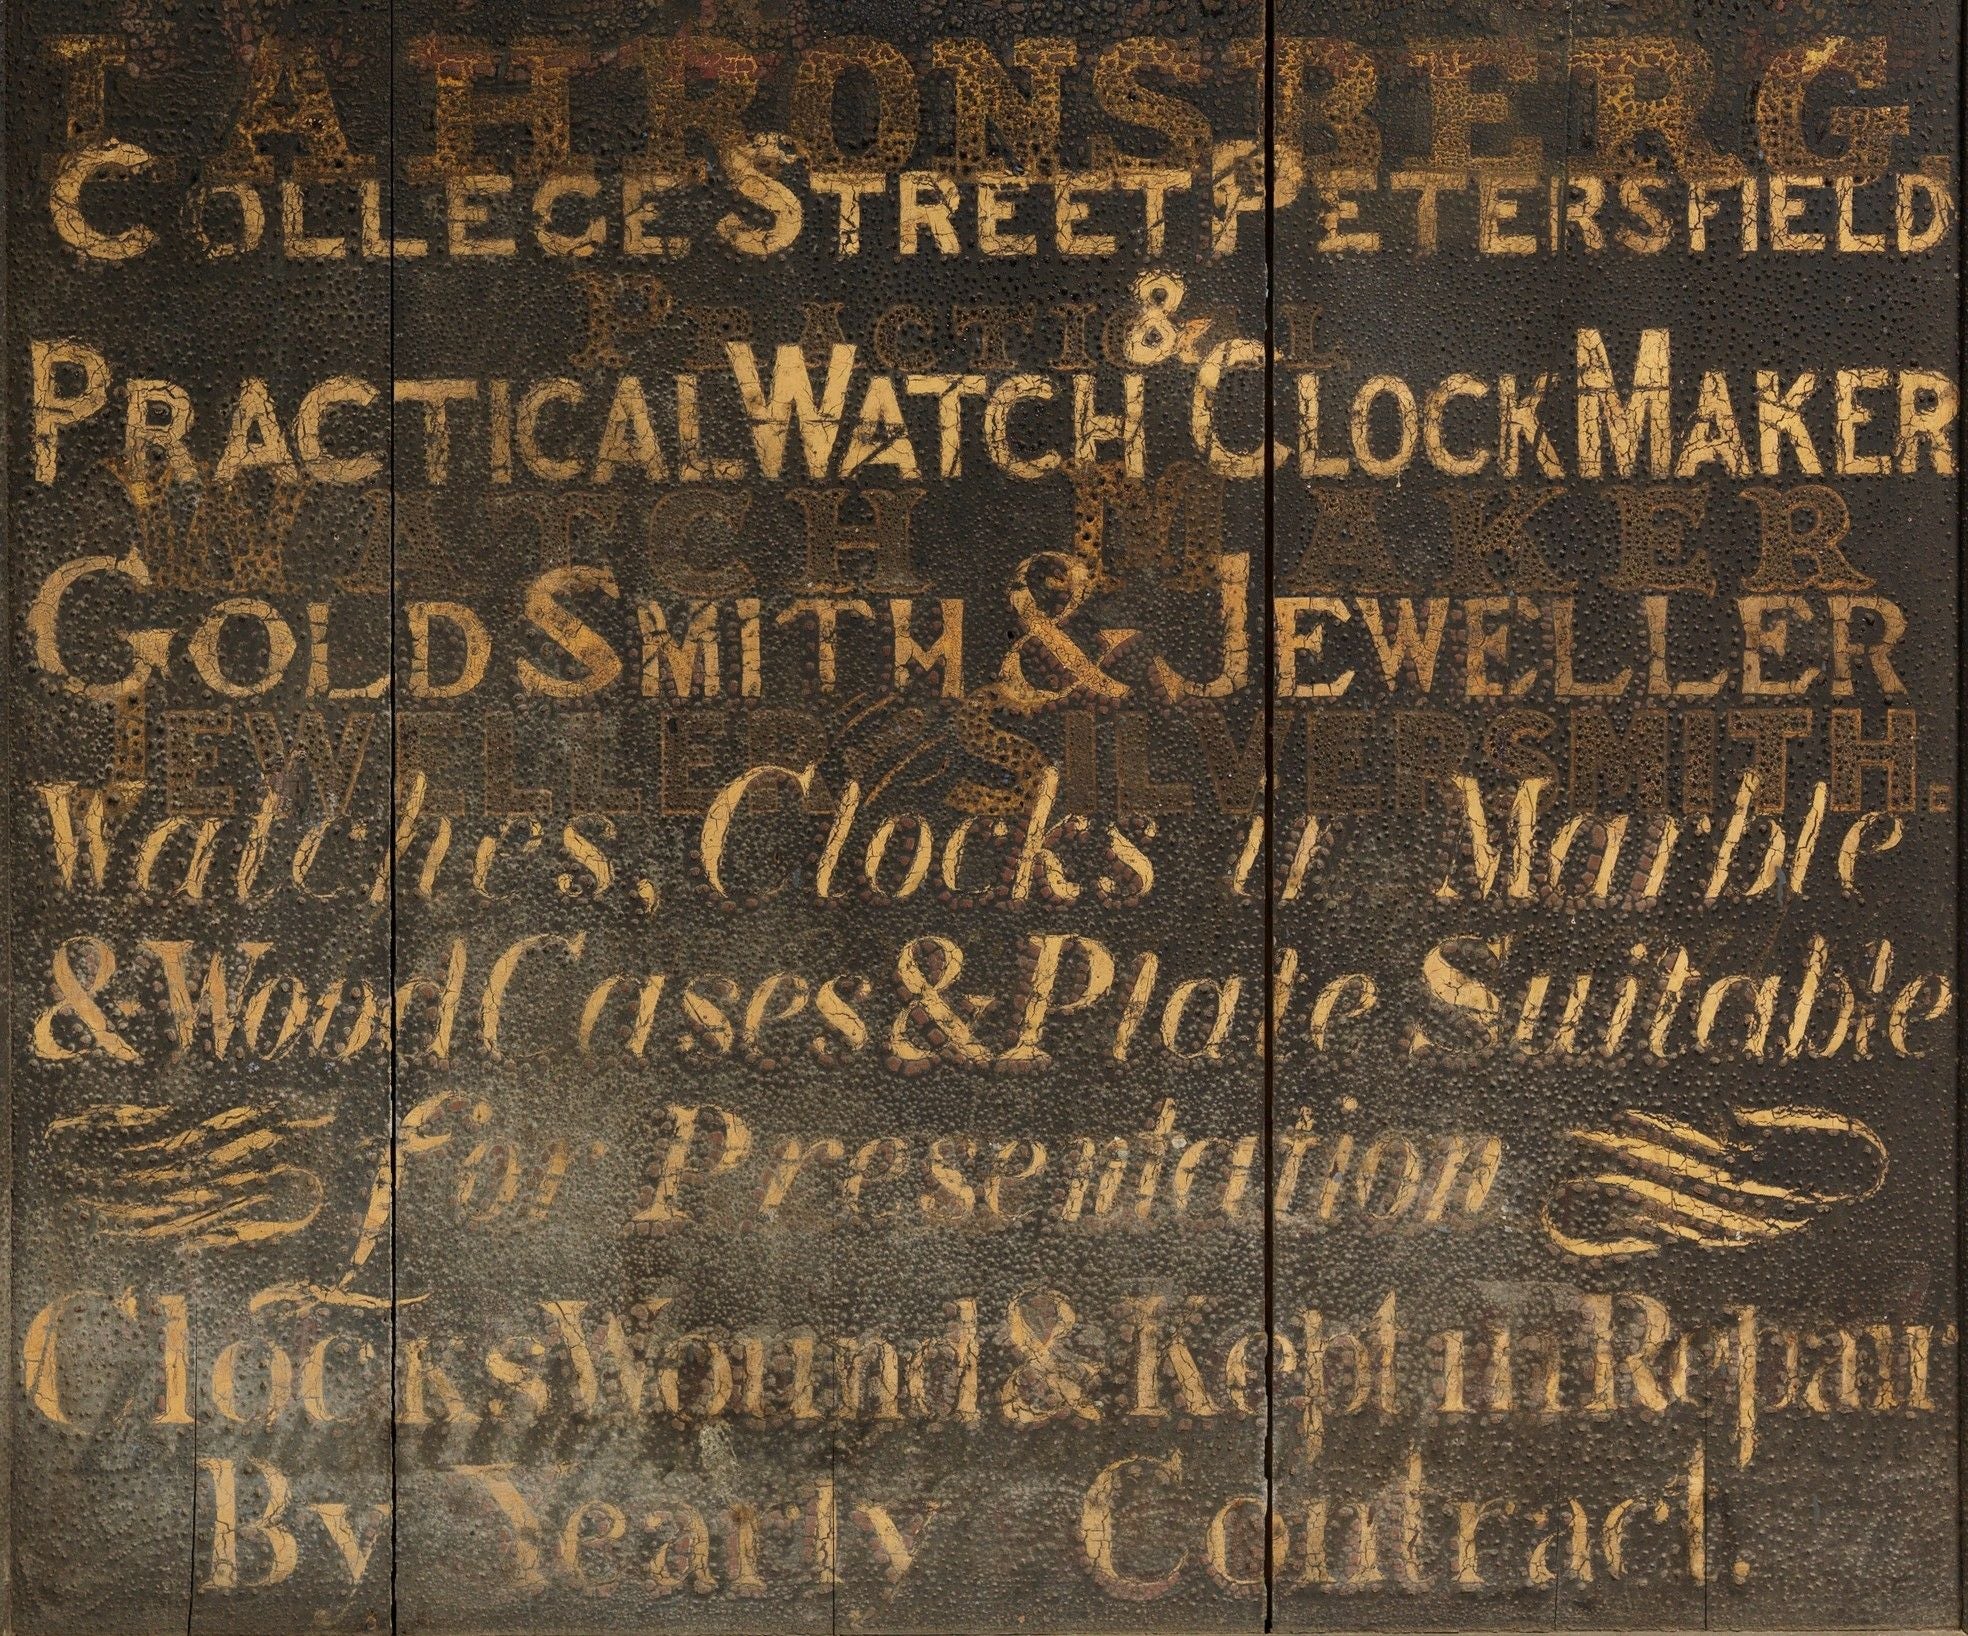 I AHRONSBERG,
COLLEGE STREET PETERSFIELD
PRACTICAL
PRACTICAL WATCH & CLOCK MAKER
WATCH MAKER
GOLD SMITH & JEWELLER
JEWELLER & SILVERSMITH.
Watches, Clocks in Marble
& Wood Cases & Plate Suitable
for Presentation
Clocks Wound & Kept in Repair
By Yearly Contract.